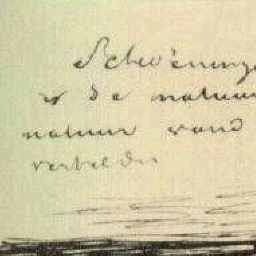 Schevening
is de natuur
natuur rond
verbelden